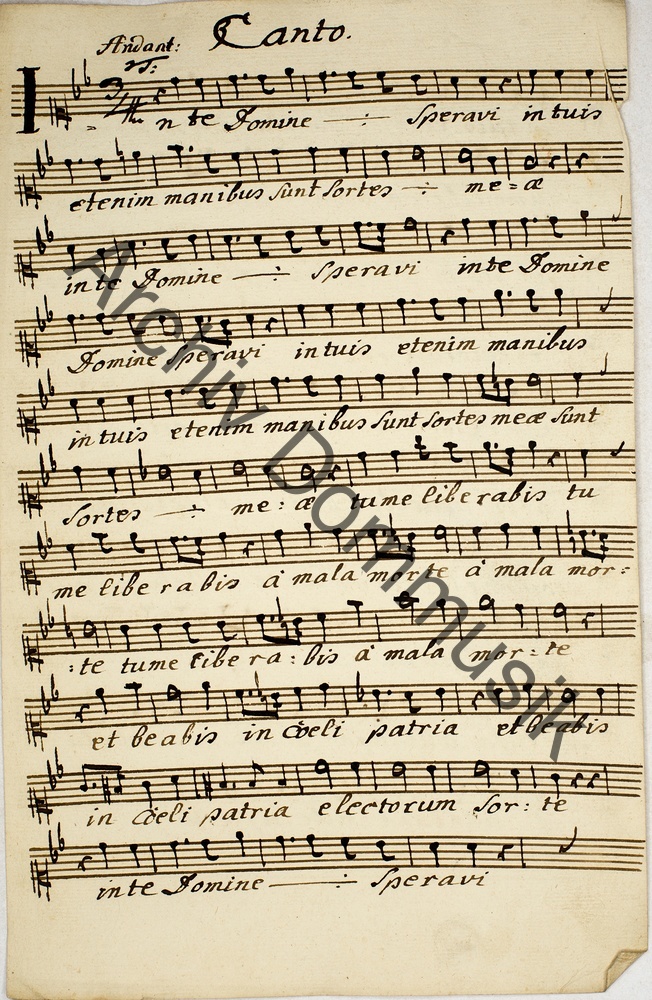 Canto.
Andant:
In te Domine —:— Speravi in tuis
etenim manibus sunt sortes —:— me=æ
in te Domine —:— Speravi in te Domine
Domine Speravi in tuis etenim manibus
in tuis etenim manibus sunt sortes meæ sunt
sortes —:— me: æ tu me liberabis tu
me liberabis á mala morte á mala mor:
:te tu me libera:bis á mala mor:te
et beabis in Cœli patria et beabis
in Cœli patria electorum sor:te
in te Domine —:— Speravi
Archiv Dommusik